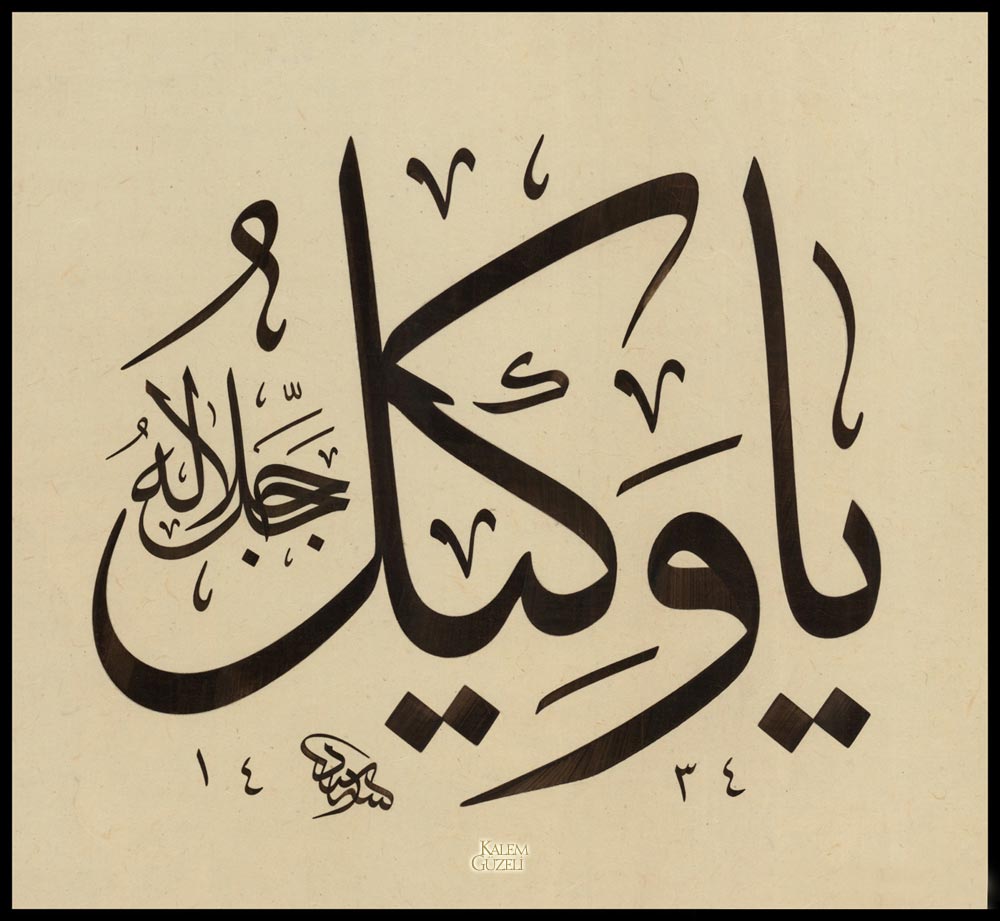 يَا وَكِيلُ
جَلَّ جَلَالُهُ
١٤ ٣٤
KALEM
GÜZELİ